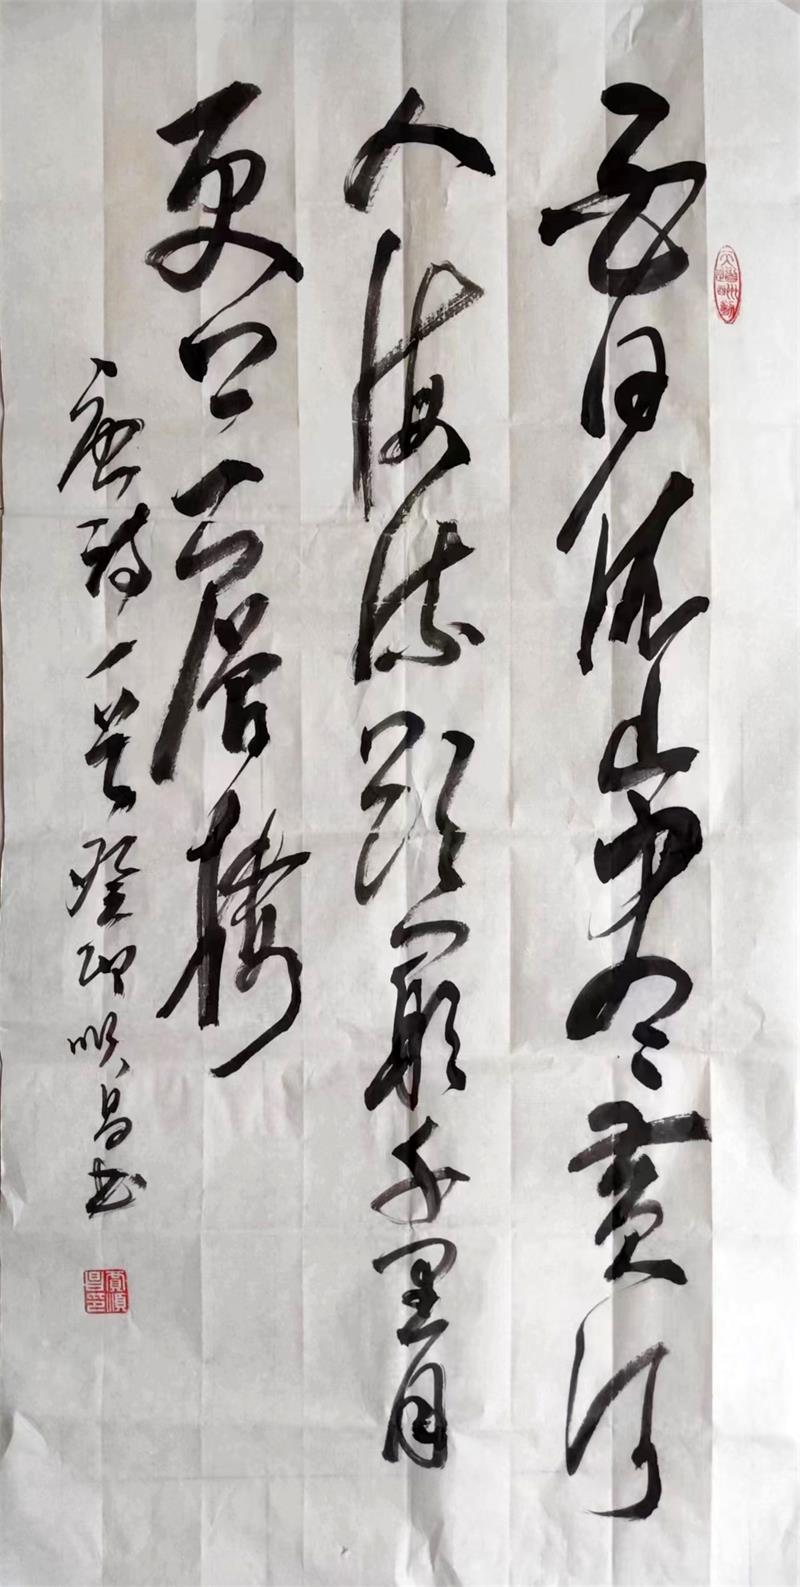 白日依山尽黄河
入海流欲窮千里目
更上一層樓
唐詩一首癸卯順昌书